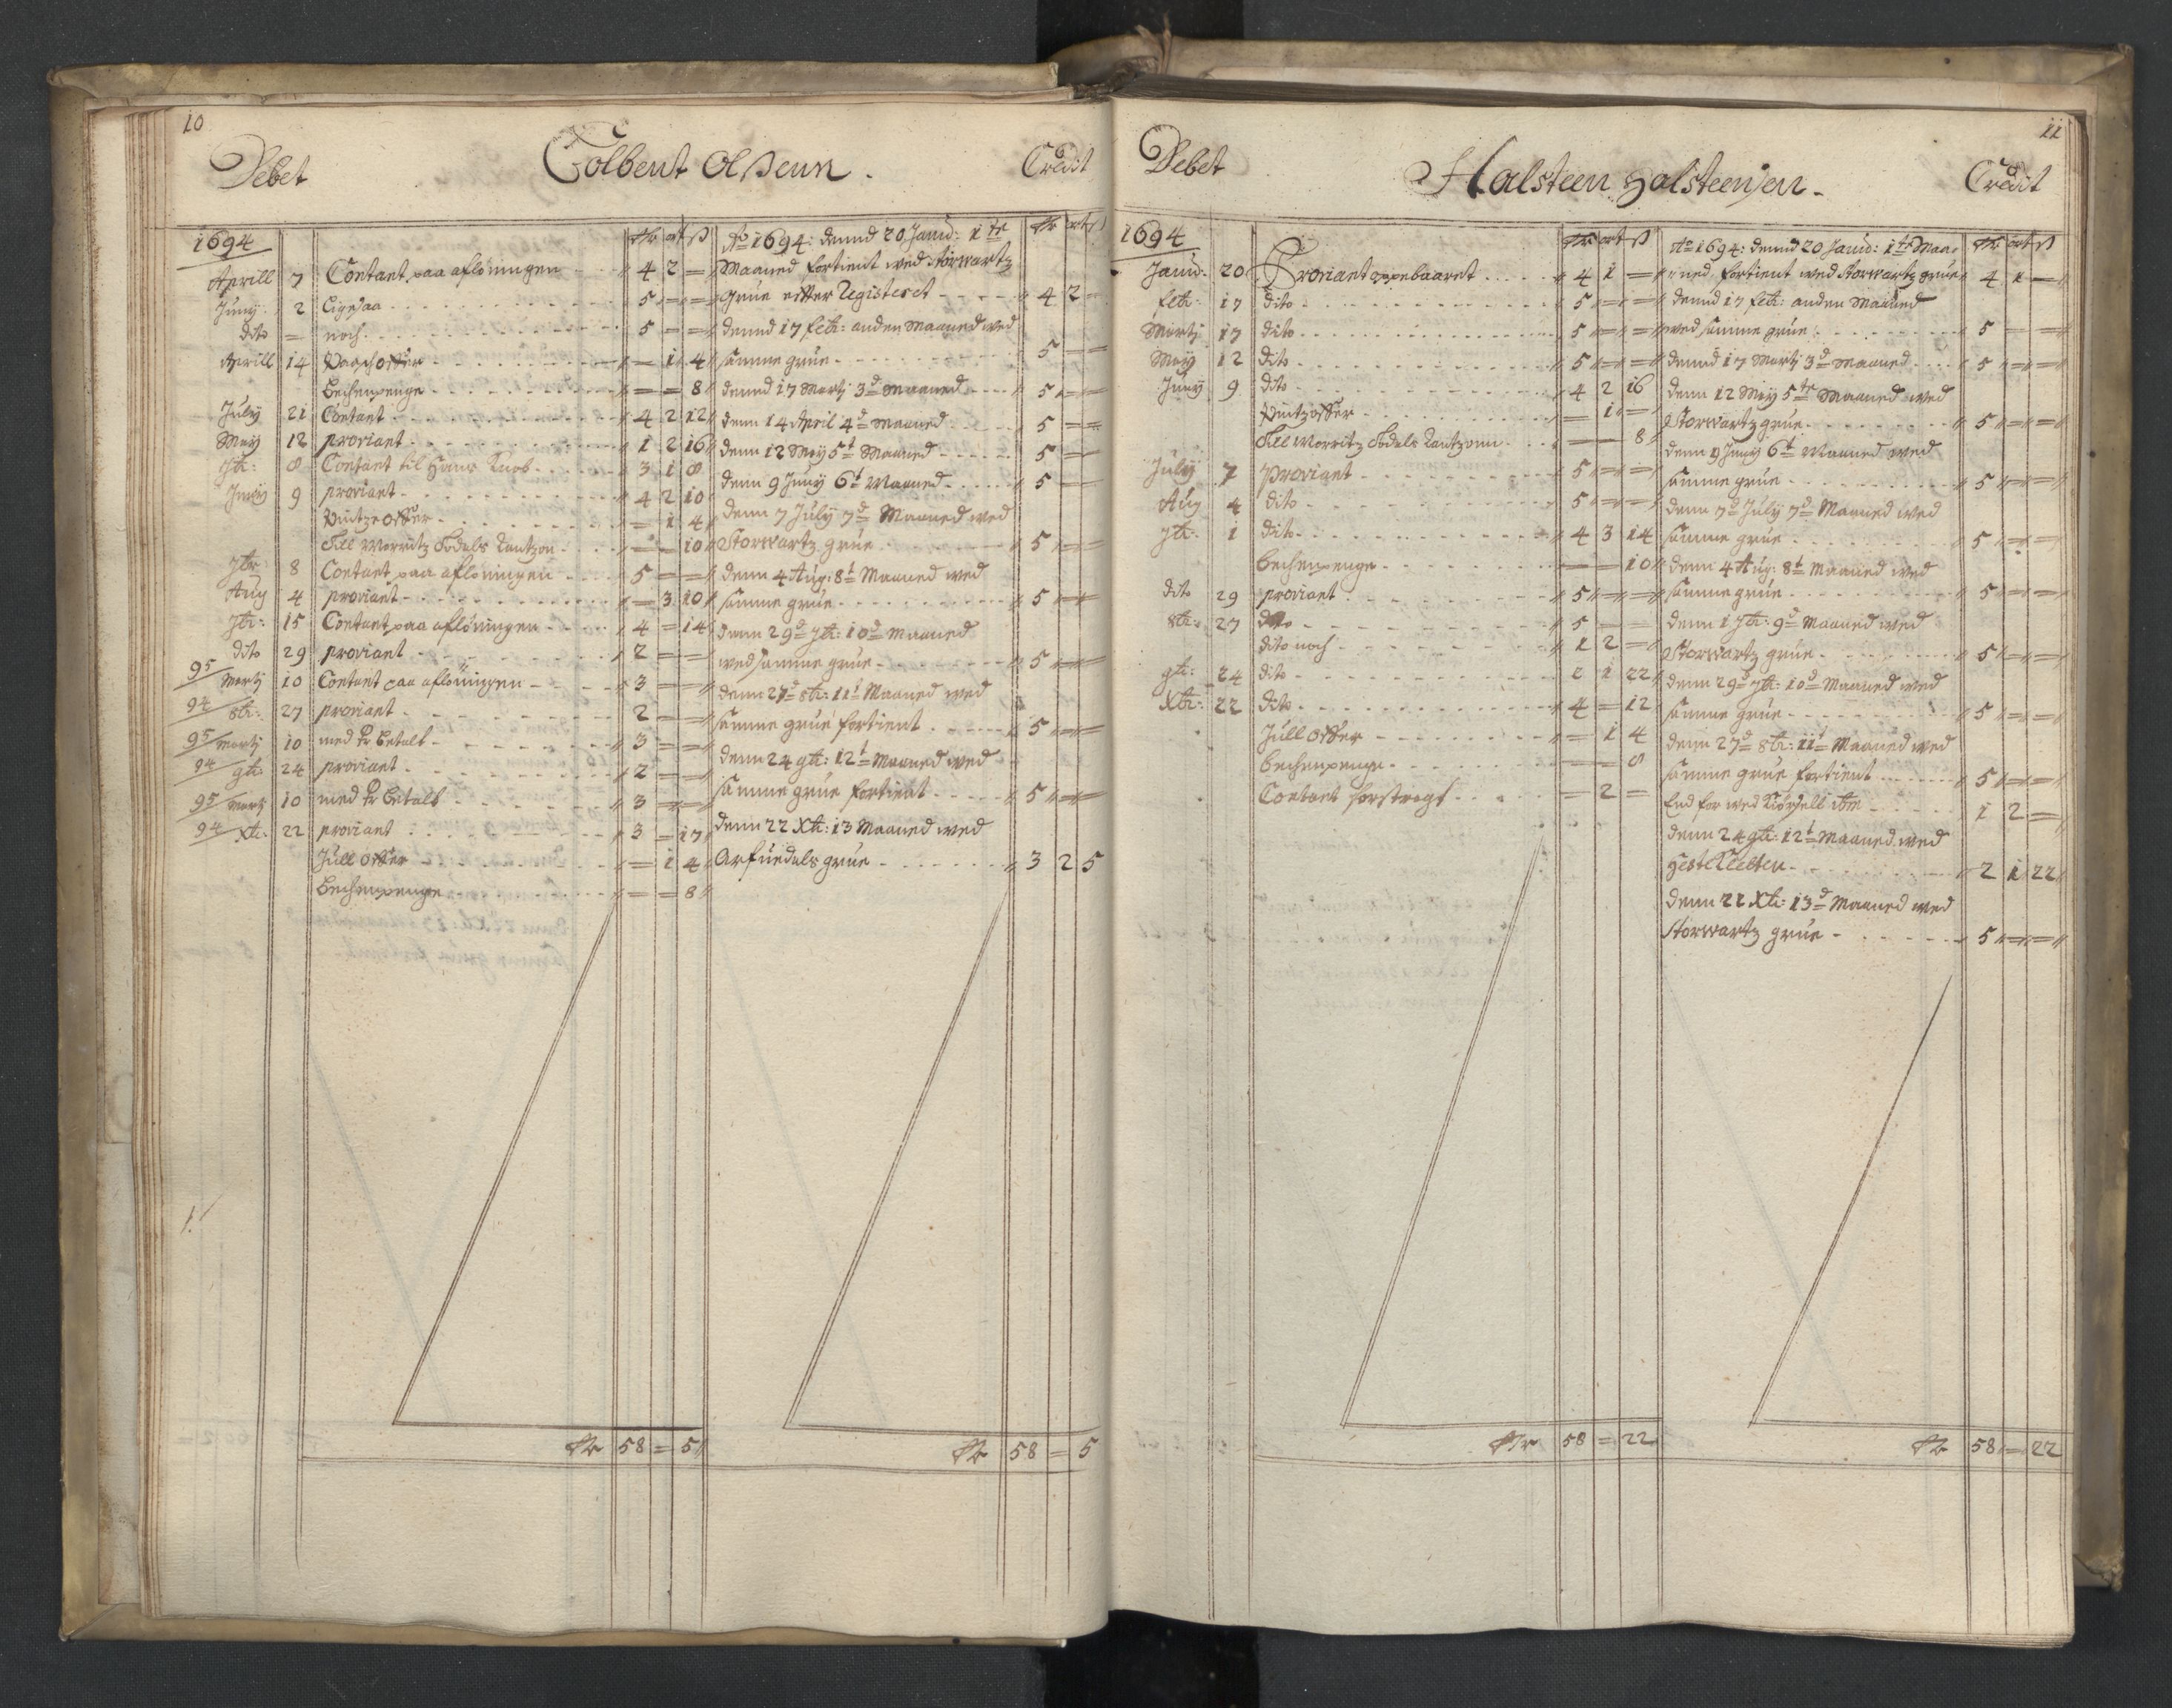 10
Debet Tolbent Olßenn. Credit
1694 Rdr ort ß
Aprill 7 Contant paa aflöningen 4 2 =
Juny 2 Ligesaa 5 = =
dito = noch 5 = =
Aprill 14 Paaschoffer = 1 4
Bechenpenge = = 8
July 21 Contant 4 2 12
May 12 proviant 1 2 16
7br: 8 Contant til Hans 3 1 8
Juny 9 proviant 4 2 10
Pintzoffer = 1 4
Till Morritz Rantzon = = 10
7br 8 Contant paa aflöningen 5 = =
Aug 4 proviant = 3 10
7br: 15 Contant paa aflöningen 4 = 14
dito 29 proviant 2 = =
95/ Martj 10 Contant paa aflöningen 3 = =
94/ 8br: 27 proviant 2 = =
95/ Martj 10 med Rdr betalt 3 = =
94/ 9br: 24 proviant 2 = =
95/ Martj 10 med Rdr betalt 3 = =
94/ Xbr: 22 proviant 3 = 17
Jull offer = 1 4
Bechenpenge = = 8
Rdr 58 = 5
Ao 1694: dennd 20 Janu: 1te Rdr ort ß
Maaned fortient wed Storwartz
Grue effter Registeret 4 2 =
dennd 17 feb: anden Maaned wed
samme grue 5 = =
dennd 17 Martj 3d Maaned 5 = =
denn 14 April 4d Maaned 5 = =
denn 12 May 5t Maaned 5 = =
denn 9 Juny 6t Maaned 5 = =
denn 7 July 7d Maaned wed
Storwartz grue 5 = =
denn 4 Aug: 8t Maaned wed
samme grue 5 = =
denn 29d 7br: 10d Maaned
wed samme grue 5 = =
denn 27d 8br: 11t Maaned wed
samme grue fortient 5 = =
denn 24 9br: 12t Maaned wed
samme grue fortient 5 = =
denn 22 Xbr: 13 Maaned wed
Arfuedals grue 3 2 5
Rdr 58 = 5
11
Debet Halsteen Halsteensen. Credit
1694 Rdr ort ß
Janu: 20 Proviant oppebaaret 4 1 =
feb: 17 dito 5 = =
Martj 17 dito 5 = =
May 12 dito 5 = =
Juny 9 dito 4 2 16
Pintzoffer = 1 =
Till Morritz Rantzonn = = 8
July 7 Proviant 5 = =
Aug 4 dito 5 = =
7br: 1 dito 4 3 14
Bechenpenge = = 10
dito 29 proviant 5 = =
8br: 27 dito 5 = =
dito noch 1 2 =
9br: 24 dito 2 1 22
Xbr: 22 dito 4 = 12
Jull offer = 1 4
Bechenpenge = = 8
Contant forstragt = 2 =
Rdr 58 = 22
Ao 1694: dennd 20 Janu: 1te Maa= Rdr ort ß
ned, fortient wed Storwartz grue 4 1 =
dennd 17 feb: anden Maaned
wed samme grue 5 = =
dennd 17 Martj 3d Maaned 5 = =
denn 12 May 5te Maaned wed
Storwartz grue 5 = =
denn 9 Juny 6t Maaned wed
samme grue 5 = =
denn 7d July 7d Maaned wed
samme grue 5 = =
denn 4 Aug: 8t Maaned wed
samme grue 5 = =
denn 1 7br: 9d Maaned wed
Storwartz grue 5 = =
denn 29d 7br: 10d Maaned wed
samme grue 5 = =
denn 27d 8br: 11t Maaned wed
samme grue fortient 5 = =
End for wed 1 2 =
denn 24 9br: 12t Maaned wed
2 1 22
denn 22 Xbr: 13d Maaned wed
Storwartz grue 5 = =
Rdr 58 = 22